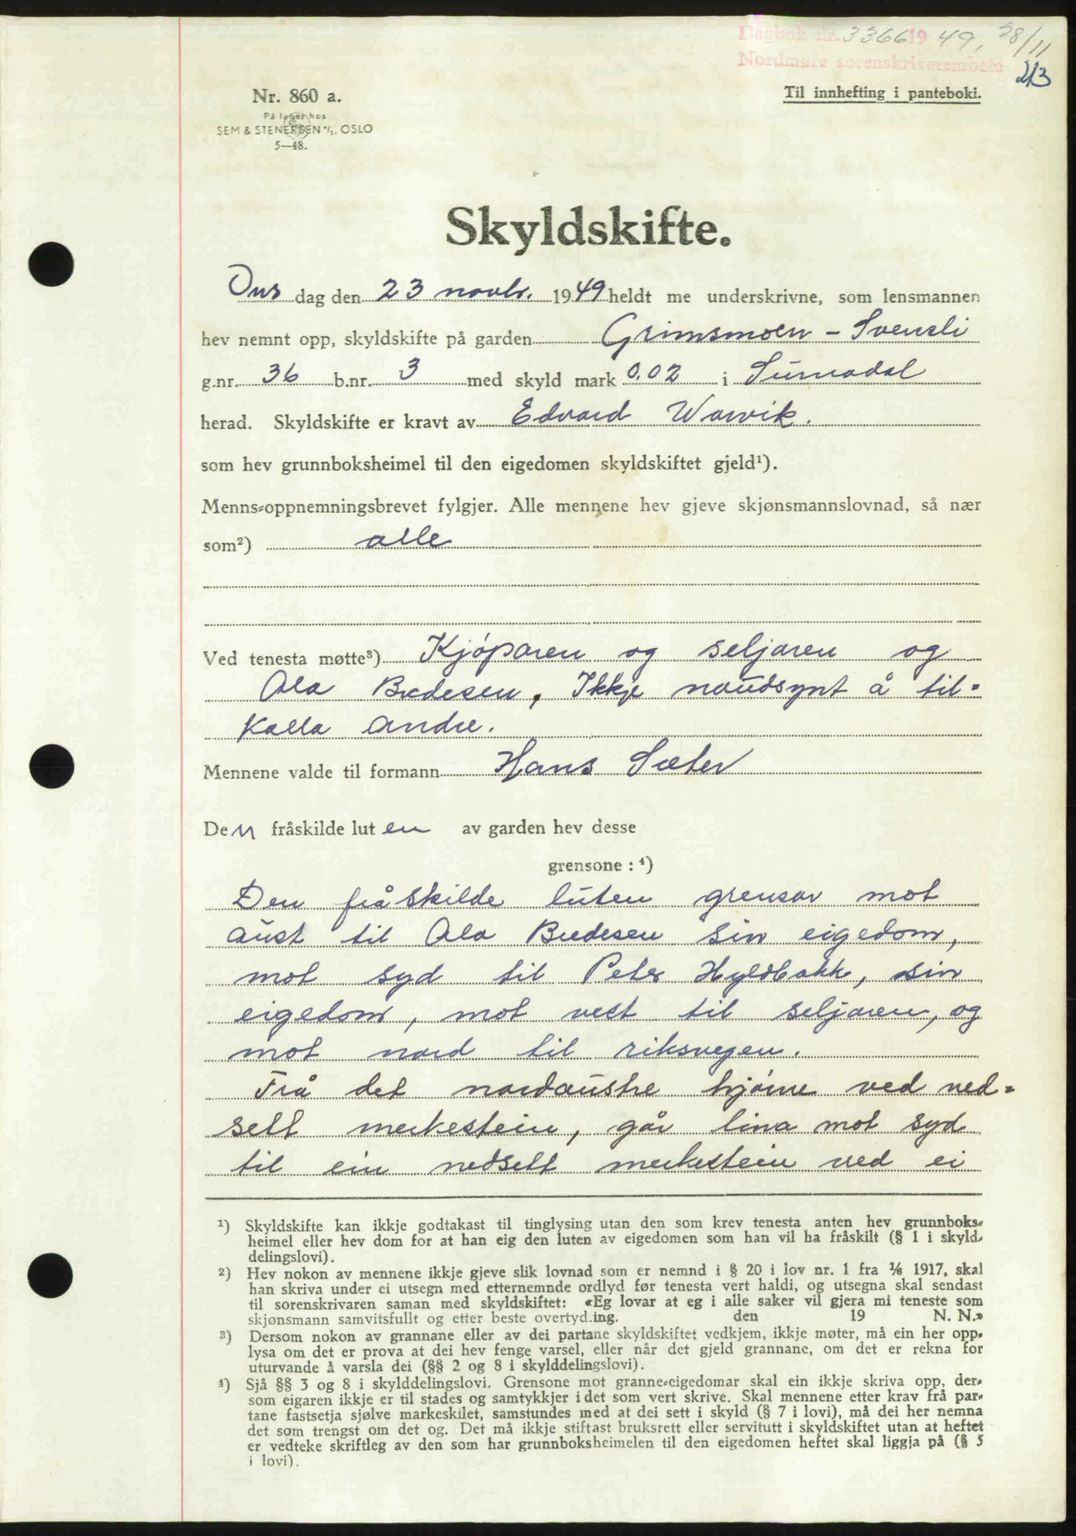 Dagbok nr. 3366 1949, 28/11
Nordmøre sorenskriverembete
213
Nr. 860 a.
Til innhefting i panteboki.
På lager hos
SEM & STENERSEN A/S, OSLO
5—48.
Skyldskifte.
Ons dag den 23 novbr. 1949 heldt me underskrivne, som lensmannen
hev nemnt opp, skyldskifte på garden Grimsmoen - Svensli
g.nr. 36 b.nr. 3 med skyld mark 0.02 i Surnadal
herad. Skyldskifte er kravt av Edvard Warvik.
som hev grunnboksheimel til den eigedomen skyldskiftet gjeld¹).
Menns-oppnemningsbrevet fylgjer. Alle mennene hev gjeve skjønsmannslovnad, så nær
som²) alle
Ved tenesta møtte³) Kjøparen og seljaren og
Ola Bredesen, Ikkje naudsynt å til-
kalla andre.
Mennene valde til formann Hans Sæter
Den fråskilde luten av garden hev desse
grensone : ⁴)
Den fråskilde luten grensar mot
aust til Ola Bredesen sin eigedom,
mot syd til Peter Hyldbakk, sin
eigedom, mot vest til seljaren, og
mot nord til riksvegen.
Frå det nordaustre hjørne ved ned-
sett merkestein, går lina mot syd
til ein nedsett merkestein ved ei
¹) Skyldskifte kan ikkje godtakast til tinglysing utan den som krev tenesta anten hev grunnboks-
heimel eller hev dom for at han eig den luten av eigedomen som han vil ha fråskilt (§ 1 i skyld-
delingslovi).
²) Hev nokon av mennene ikkje gjeve slik lovnad som er nemnd i § 20 i lov nr. 1 fra 1/6 1917, skal
han skriva under ei utsegn med etternemnde ordlyd før tenesta vert haldi, og utsegna skal sendast
til sorenskrivaren saman med skyldskiftet: «Eg lovar at eg i alle saker vil gjera mi teneste som
skjønsmann samvitsfullt og etter beste overtyding. den 19 N. N.»
³) Dersom nokon av grannane eller av dei partane skyldskiftet vedkjem, ikkje møter, må ein her opp-
lysa om det er prova at dei hev fenge varsel, eller når det gjeld grannane, om det er rekna for
uturvande å varsla dei (§§ 2 og 8 i skylddelingslovi).
⁴) Sjå §§ 3 og 8 i skylddelingslovi. Grensone mot granne-eigedomar skal ein ikkje skriva opp, der-
som eigaren ikkje er til stades og samtykkjer i det som vert skrive. Skal mennene etter krav frå par-
tane fastsetja sjølve markeskilet, samstundes med at dei sett i skyld (§ 7 i lovi), må dei her nemna
det som trengst om det og. Det må ikkje stiftast bruksrett eller servitutt i skyldskiftet utan at heftet
er vedteke skriftleg av den som har grunnboksheimelen til den eigedomen heftet skal liggja på (§ 5
i lovi).